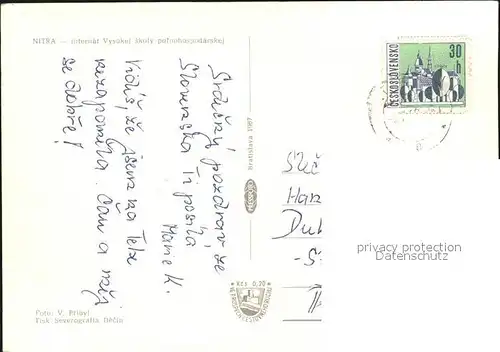 NITRA — internát Vysokej školy poľnohospodárskej
Srdečný pozdrav ze
Slovenska Ti posílá
Marie K.
Vidíš, že jsem na Tebe
nezapomněla. Čau a měj
se dobře!
Foto: V. Přibyl
Tisk: Severografia Děčín
Bratislava 1967
Kčs 0,20
ČESKOSLOVENSKO
30 h
Sleč
Han
Du
privacy protection
Datenschutz